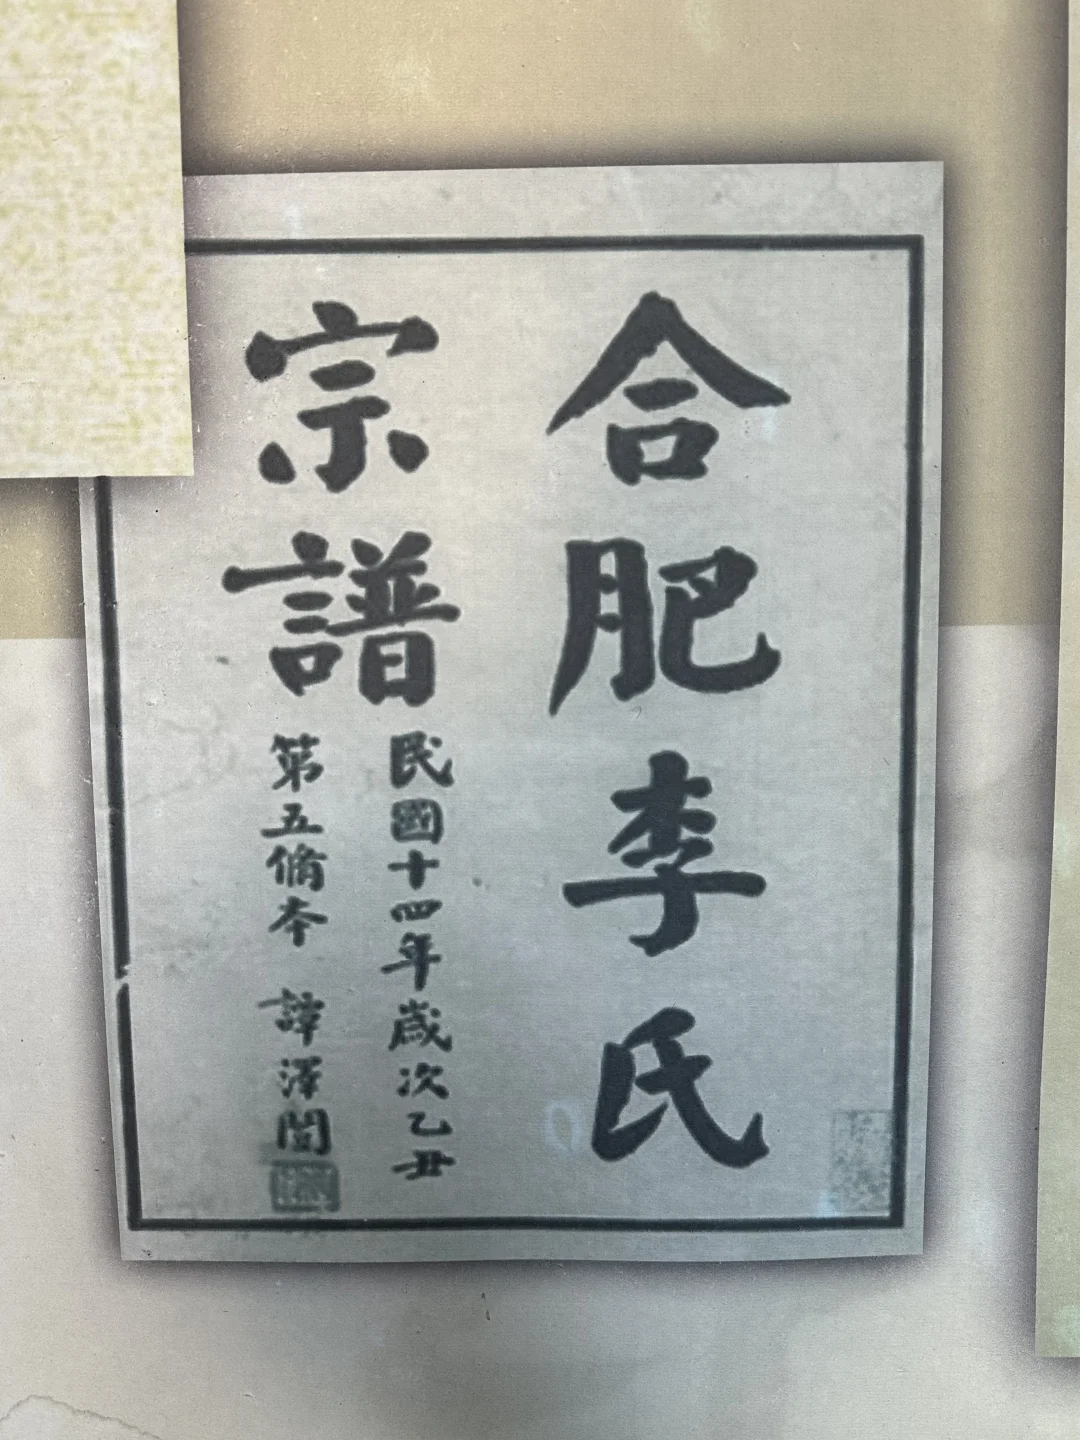 合肥李氏
宗譜
民國十四年歲次乙丑
第五脩本 譚澤闓